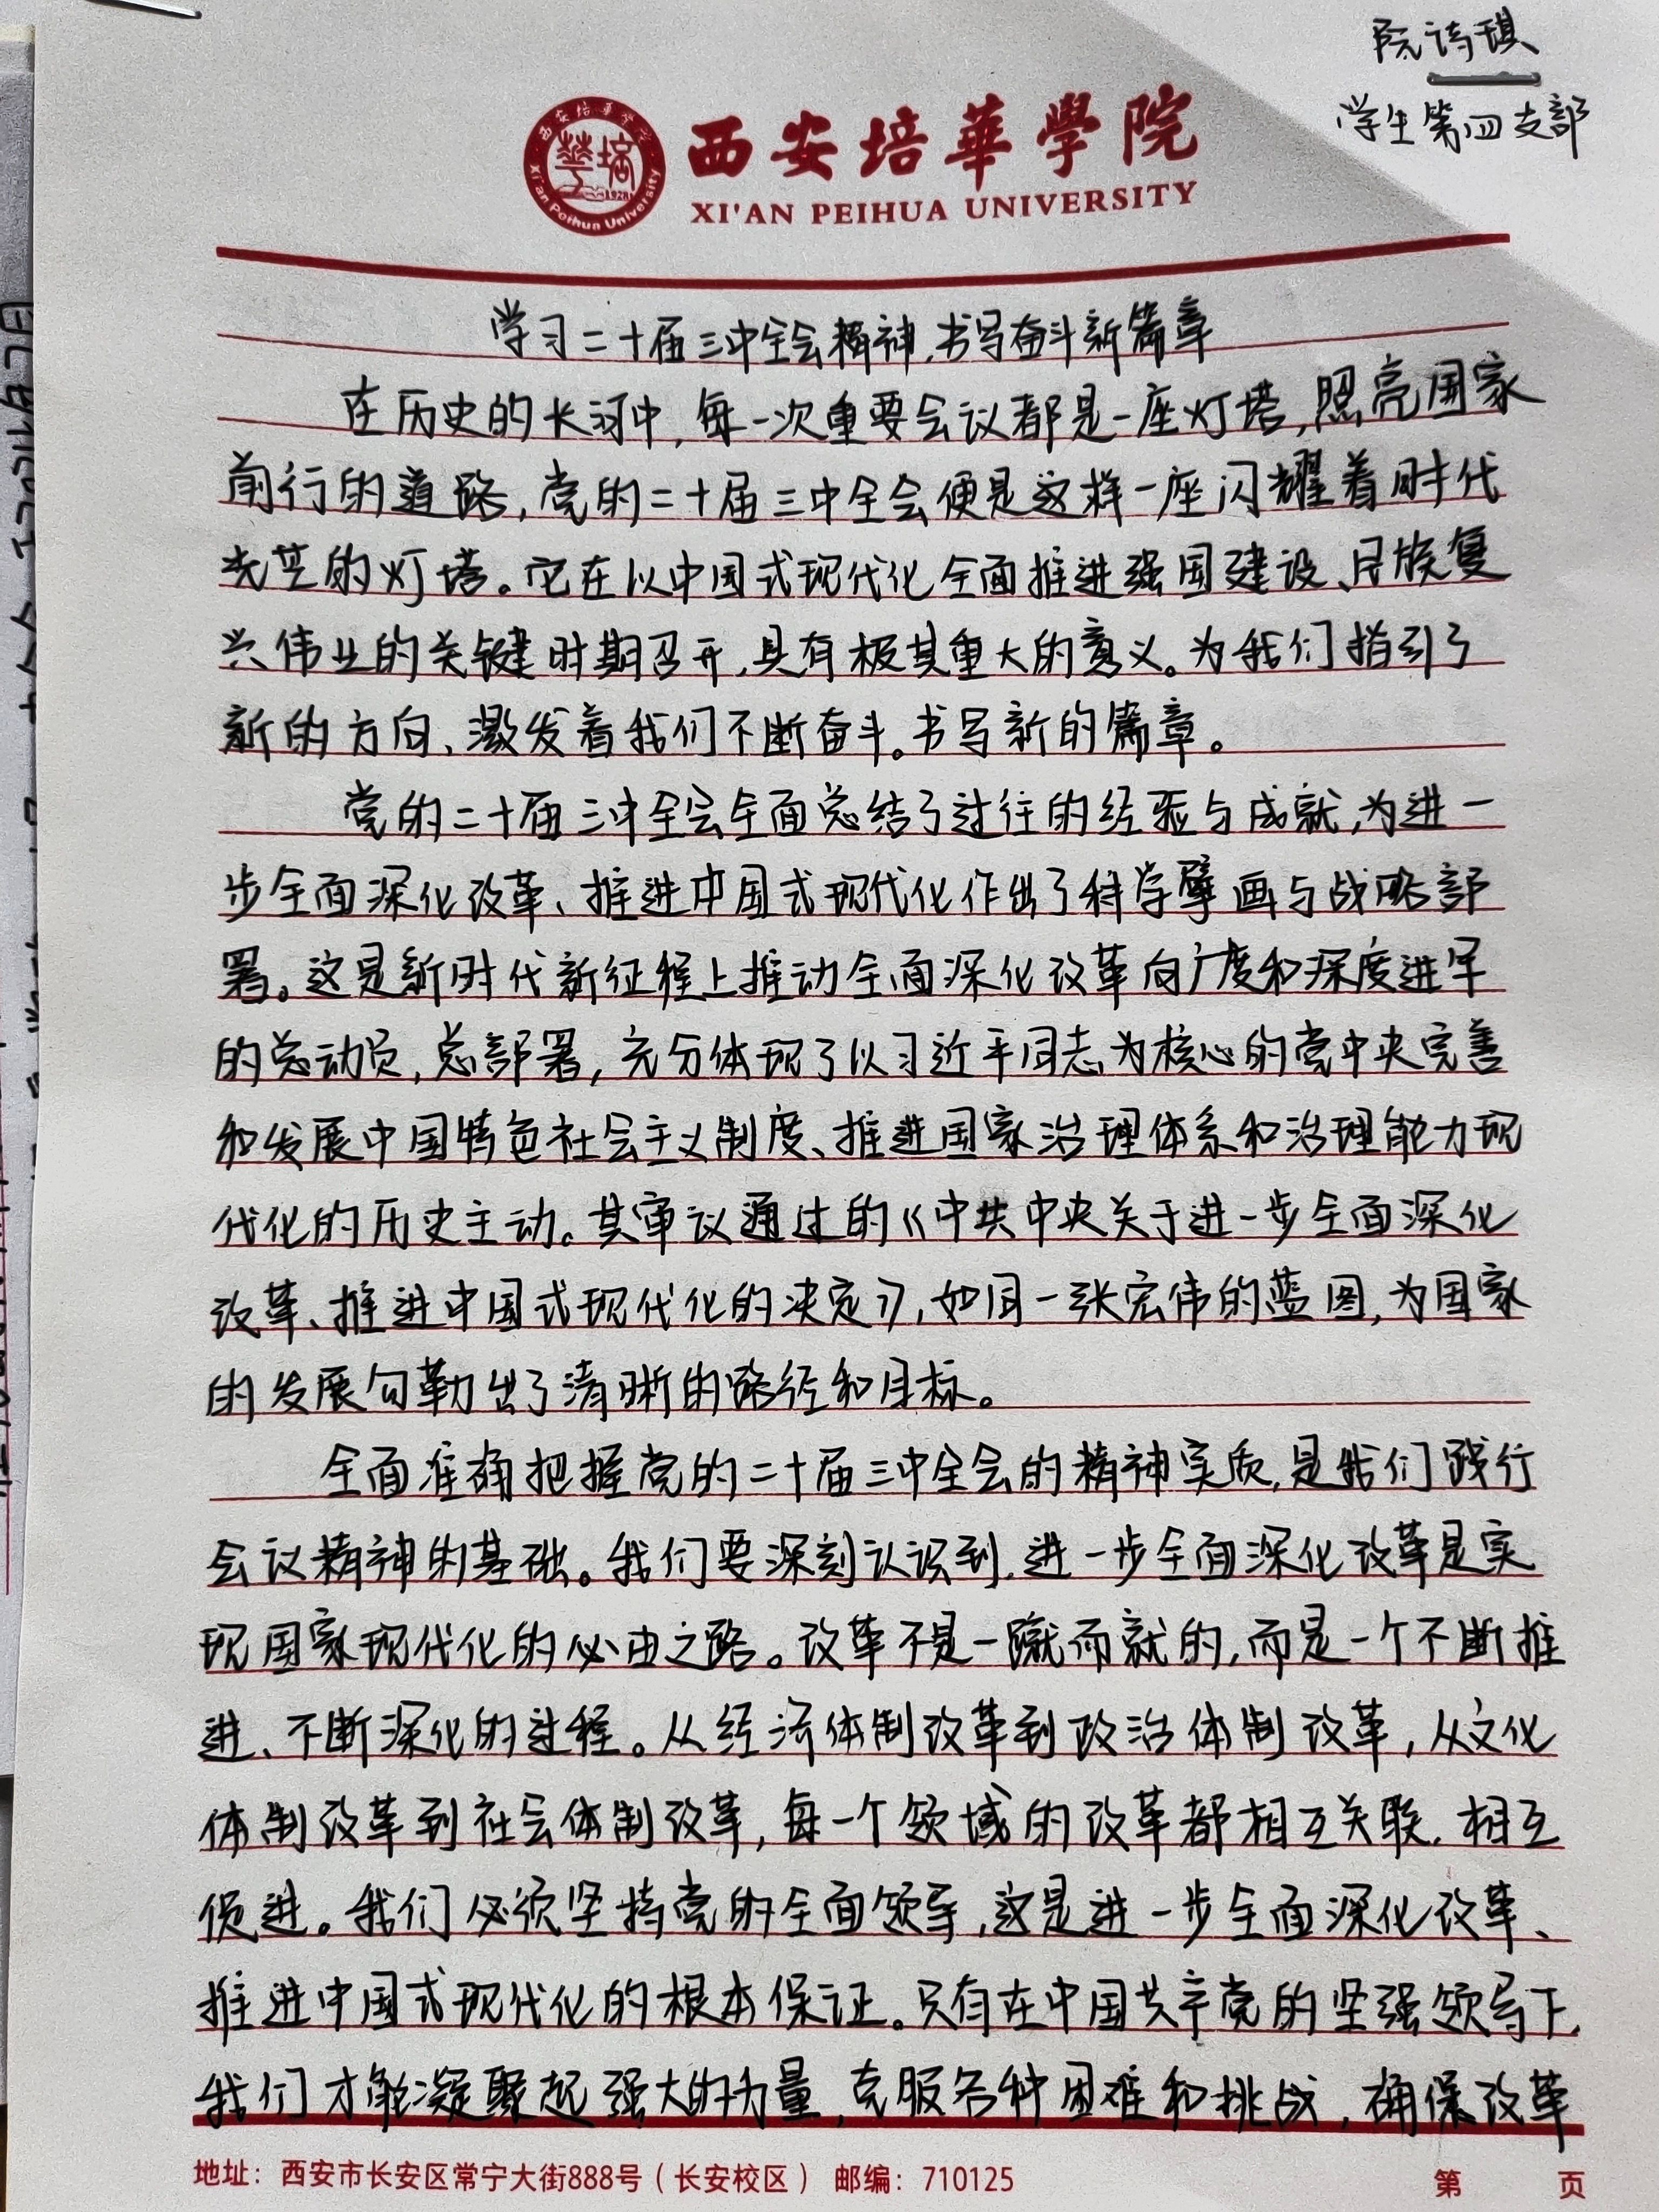 阮诗琪
学生第四支部
西安培華學院
XI'AN PEIHUA UNIVERSITY
西安培華學院
1928
Xi'an Peihua University
学习二十届三中全会精神,书写奋斗新篇章
在历史的长河中,每一次重要会议都是一座灯塔,照亮国家
前行的道路,党的二十届三中全会便是这样一座闪耀着时代
光芒的灯塔。它在以中国式现代化全面推进强国建设、民族复
兴伟业的关键时期召开,具有极其重大的意义。为我们指引了
新的方向、激发着我们不断奋斗。书写新的篇章。
党的二十届三中全会全面总结了过往的经验与成就,为进一
步全面深化改革、推进中国式现代化作出了科学擘画与战略部
署。这是新时代新征程上推动全面深化改革向广度和深度进军
的总动员,总部署,充分体现了以习近平同志为核心的党中央完善
和发展中国特色社会主义制度、推进国家治理体系和治理能力现
代化的历史主动。其审议通过的《中共中央关于进一步全面深化
改革、推进中国式现代化的决定》,如同一张宏伟的蓝图,为国家
的发展勾勒出了清晰的路径和目标。
全面准确把握党的二十届三中全会的精神实质,是我们践行
会议精神的基础。我们要深刻认识到,进一步全面深化改革是实
现国家现代化的必由之路。改革不是一蹴而就的,而是一个不断推
进、不断深化的过程。从经济体制改革到政治体制改革,从文化
体制改革到社会体制改革,每一个领域的改革都相互关联,相互
促进。我们必须坚持党的全面领导,这是进一步全面深化改革、
推进中国式现代化的根本保证。只有在中国共产党的坚强领导下,
我们才能凝聚起强大的力量,克服各种困难和挑战,确保改革
地址：西安市长安区常宁大街888号（长安校区） 邮编：710125
第 页